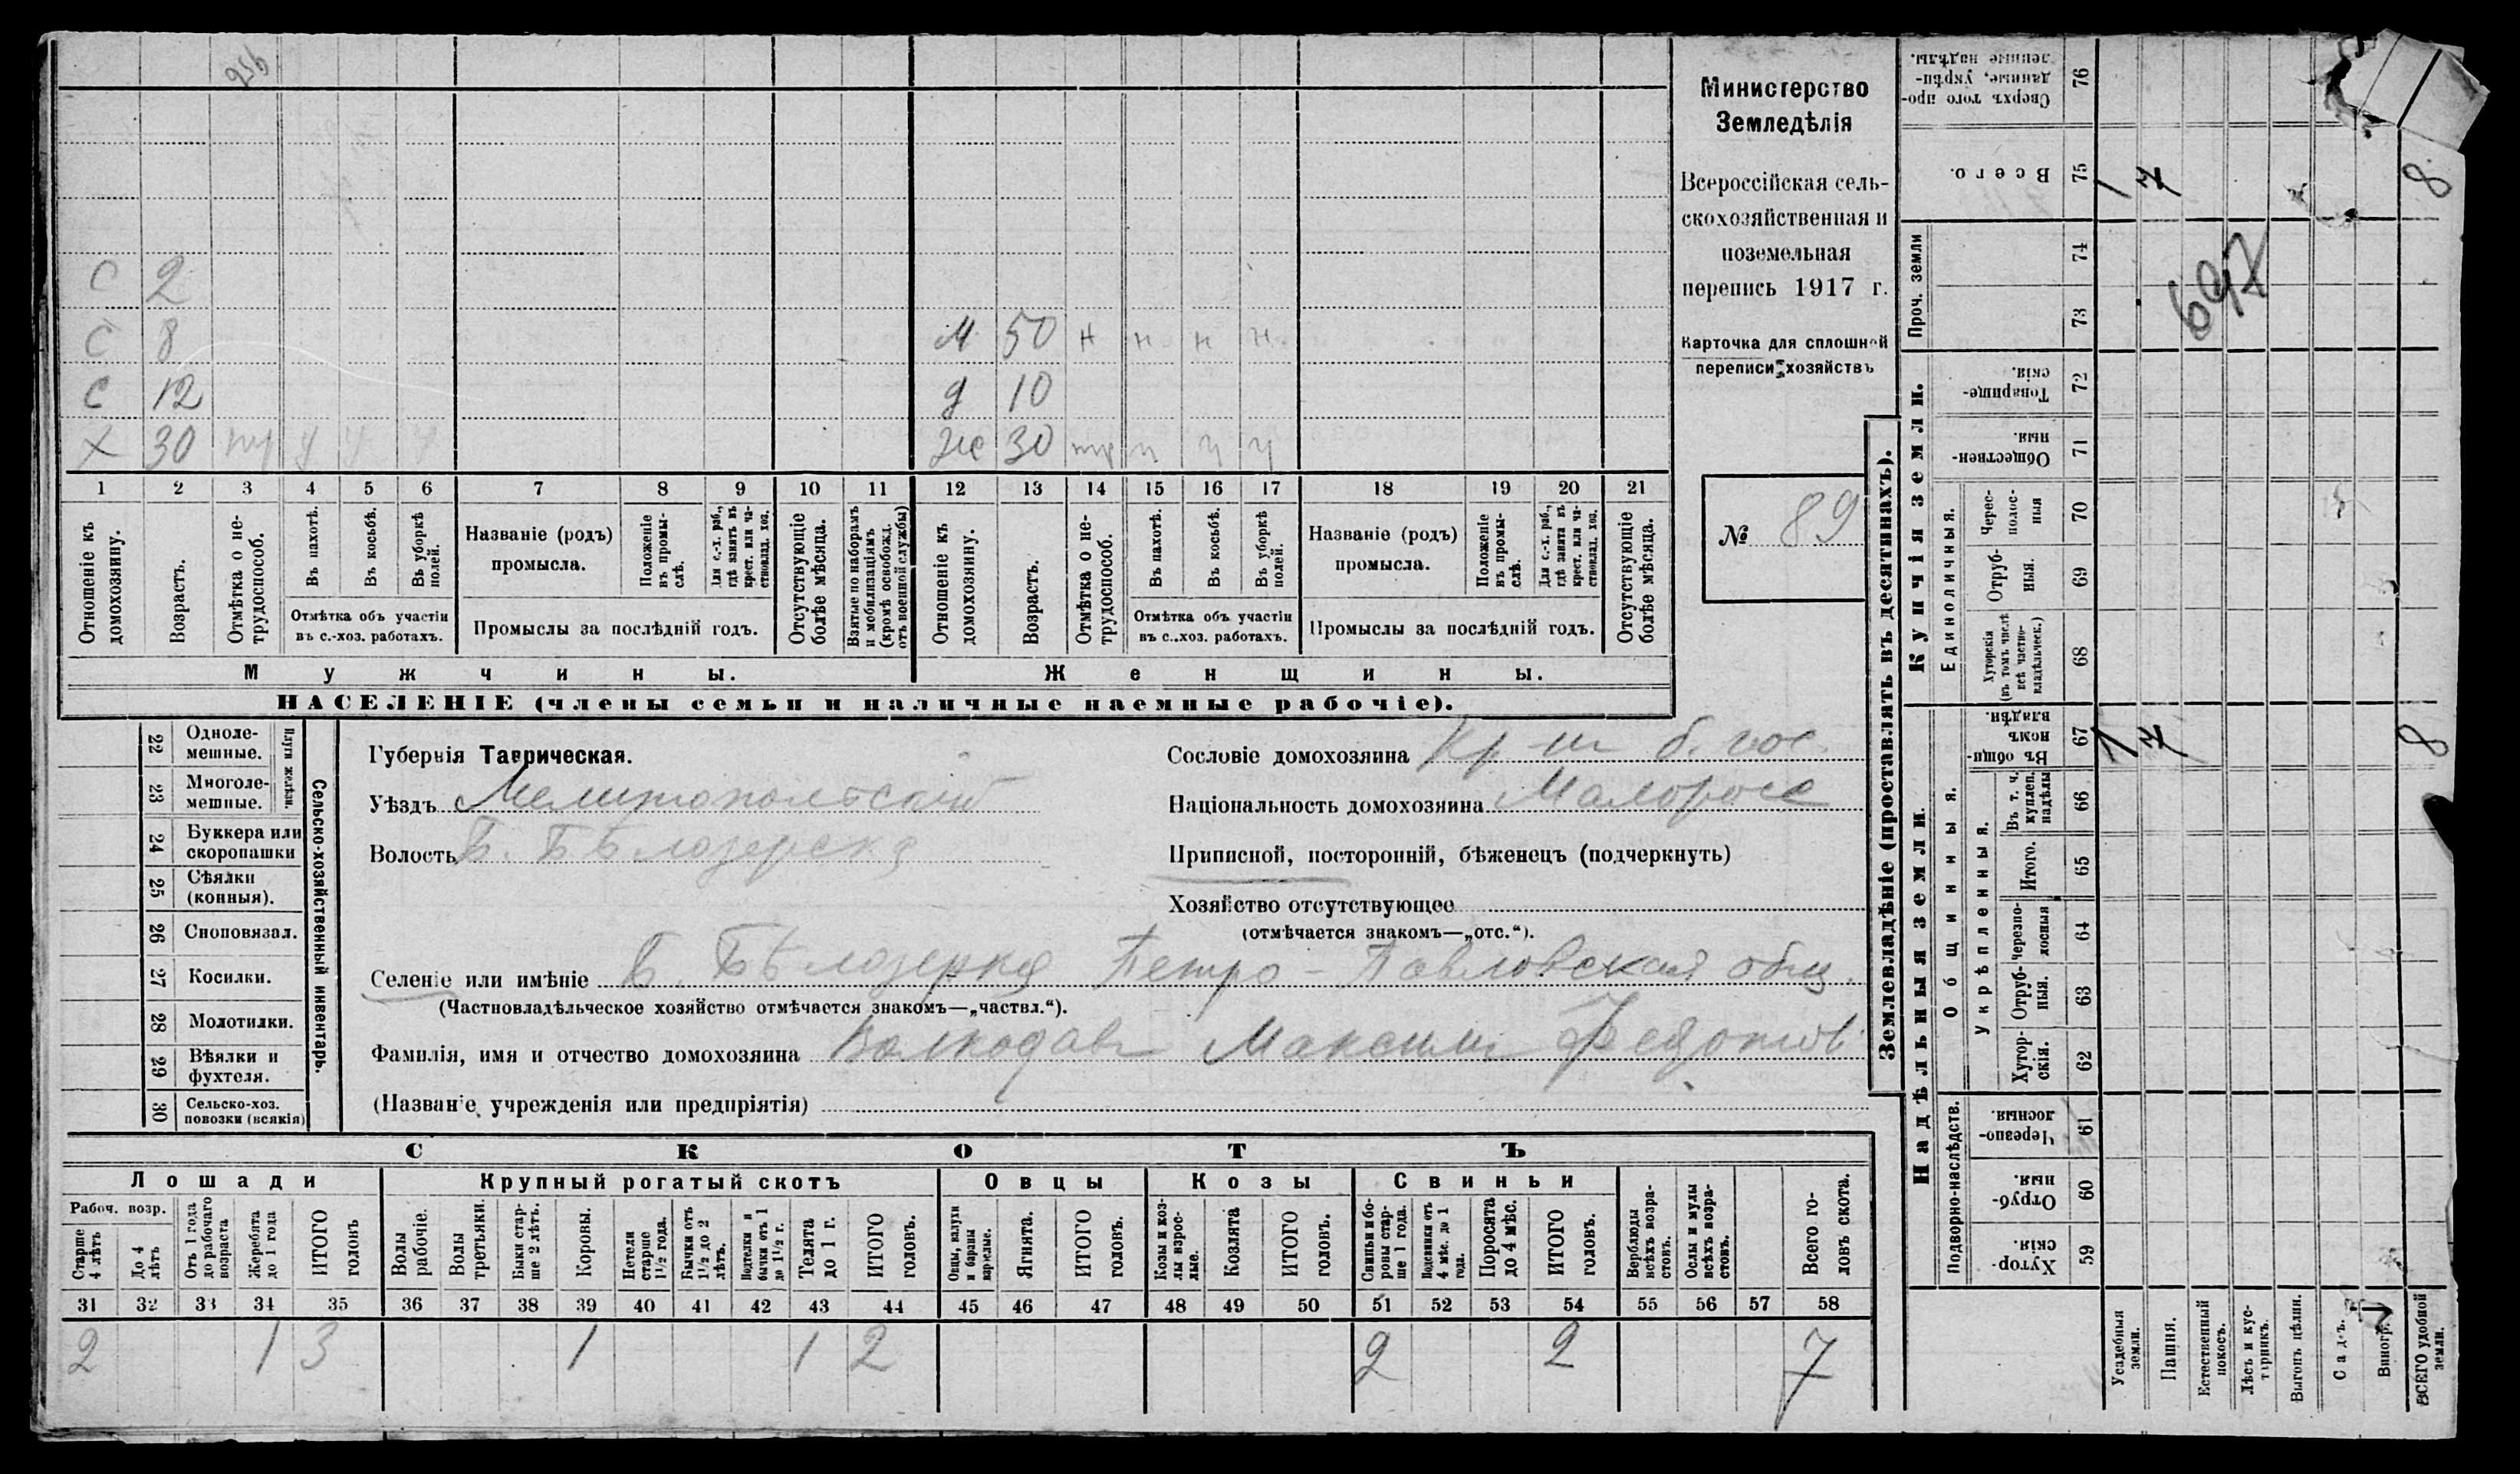 956
С 2
С 8 М 50 н н н н
С 12 д 10
Х 30 Ж 30
1 2 3 4 5 6 7 8 9 10 11 12 13 14 15 16 17 18 19 20 21
Отношеніе къ домохозяину.
Возрастъ.
Отмѣтка о нетрудоспособ.
Въ пахотѣ.
Въ косьбѣ.
Въ уборкѣ полей.
Отмѣтка объ участіи
въ с.-хоз. работахъ.
Названіе (родъ)
промысла.
Положеніе въ промыслѣ.
Для с.-х. раб., гдѣ занятъ въ крест. или частновлад. хоз.
Промыслы за послѣдній годъ.
Отсутствующіе болѣе мѣсяца.
Взятые по наборамъ и мобилизаціямъ (кромѣ освобожд. отъ военной службы)
Отношеніе къ домохозяину.
Возрастъ.
Отмѣтка о нетрудоспособ.
Въ пахотѣ.
Въ косьбѣ.
Въ уборкѣ полей.
Отмѣтка объ участіи
въ с..хоз. работахъ.
Названіе (родъ)
промысла.
Положеніе въ промыслѣ.
Для с.-х. раб., гдѣ занята въ крест. или частновлад. хоз.
Промыслы за послѣдній годъ.
Отсутствующіе болѣе мѣсяца.
Мужчины. Женщины.
НАСЕЛЕНІЕ (члены семьи и наличные наемные рабочіе).
Министерство
Земледѣлія
Всероссійская сель-
скохозяйственная и
поземельная
перепись 1917 г.
Карточка для сплошной
переписи хозяйствъ
№ 89
22 Одноле-
мешные.
23 Многоле-
мешные.
Плуги желѣзн.
24 Буккера или
скоропашки
25 Сѣялки
(конныя).
26 Сноповязал.
27 Косилки.
28 Молотилки.
29 Вѣялки и
фухтеля.
30 Сельско-хоз.
повозки (всякія)
Сельско-хозяйственный инвентарь.
Губернія Таврическая.
Уѣздъ Мелитопольскій
Волость Б. Бѣлозерска
Сословіе домохозяина Кр
Національность домохозяина Малоросс
Приписной, посторонній, бѣженецъ (подчеркнуть)
Хозяйство отсутствующее
(отмѣчается знакомъ—„отс.“).
Селеніе или имѣніе Б. Бѣлозерка Петро-Павловская общ.
(Частновладѣльческое хозяйство отмѣчается знакомъ—„частвл.“).
Фамилія, имя и отчество домохозяина Волкодавъ Максимъ Федотов
(Названіе учрежденія или предпріятія)
СКОТЪ
Лошади Крупный рогатый скотъ Овцы Козы Свиньи
Рабоч. возр.
Старше 4 лѣтъ
До 4 лѣтъ
Отъ 1 года до рабочаго возраста
Жеребята до 1 года
ИТОГО головъ
Волы рабочіе.
Волы третьяки.
Быки старше 2 лѣтъ.
Коровы.
Нетели старше 1½ года.
Бычки отъ 1½ до 2 лѣтъ.
Подтелки и бычки отъ 1 до 1½ г.
Телята до 1 г.
ИТОГО головъ.
Овцы, валухи и бараны взрослые.
Ягнята.
ИТОГО головъ.
Козы и козлы взрослые.
Козлята
ИТОГО головъ.
Свиньи и боровы старше 1 года.
Подсвинки отъ 4 мѣс. до 1 года.
Поросята до 4 мѣс.
ИТОГО головъ.
Верблюды всѣхъ возрастовъ.
Ослы и мулы всѣхъ возрастовъ.
Всего головъ скота.
31 32 33 34 35 36 37 38 39 40 41 42 43 44 45 46 47 48 49 50 51 52 53 54 55 56 57 58
2 1 3 1 1 2 2 2 7
Землевладѣніе (проставлять въ десятинахъ).
Сверхъ того проданные, укрѣпленные надѣлы. 76
Всего. 75 1 7 8
Проч. земли 74 73
697
Купчія земли.
Товарищескія. 72
Общественныя. 71
Единоличныя.
Чересполосныя 70
Отрубныя. 69
Хуторскія (въ томъ числѣ всѣ частновладѣльческ.) 68
Надѣльныя земли.
Общинныя.
Въ общинномъ владѣн. 67 1 7 8
Укрѣпленныя.
Въ т. ч. куплен. надѣлы 66
Итого. 65
Черезполосныя 64
Отрубныя. 63
Хуторскія. 62
Подворно-наслѣдств.
Черезполосныя. 61
Отрубныя. 60
Хуторскія. 59
Усадебныя земли.
Пашня.
Естественный покосъ.
Лѣсъ и кустарникъ.
Выгонъ цѣлин.
Садъ.
Виногр.
ВСЕГО удобной земли.